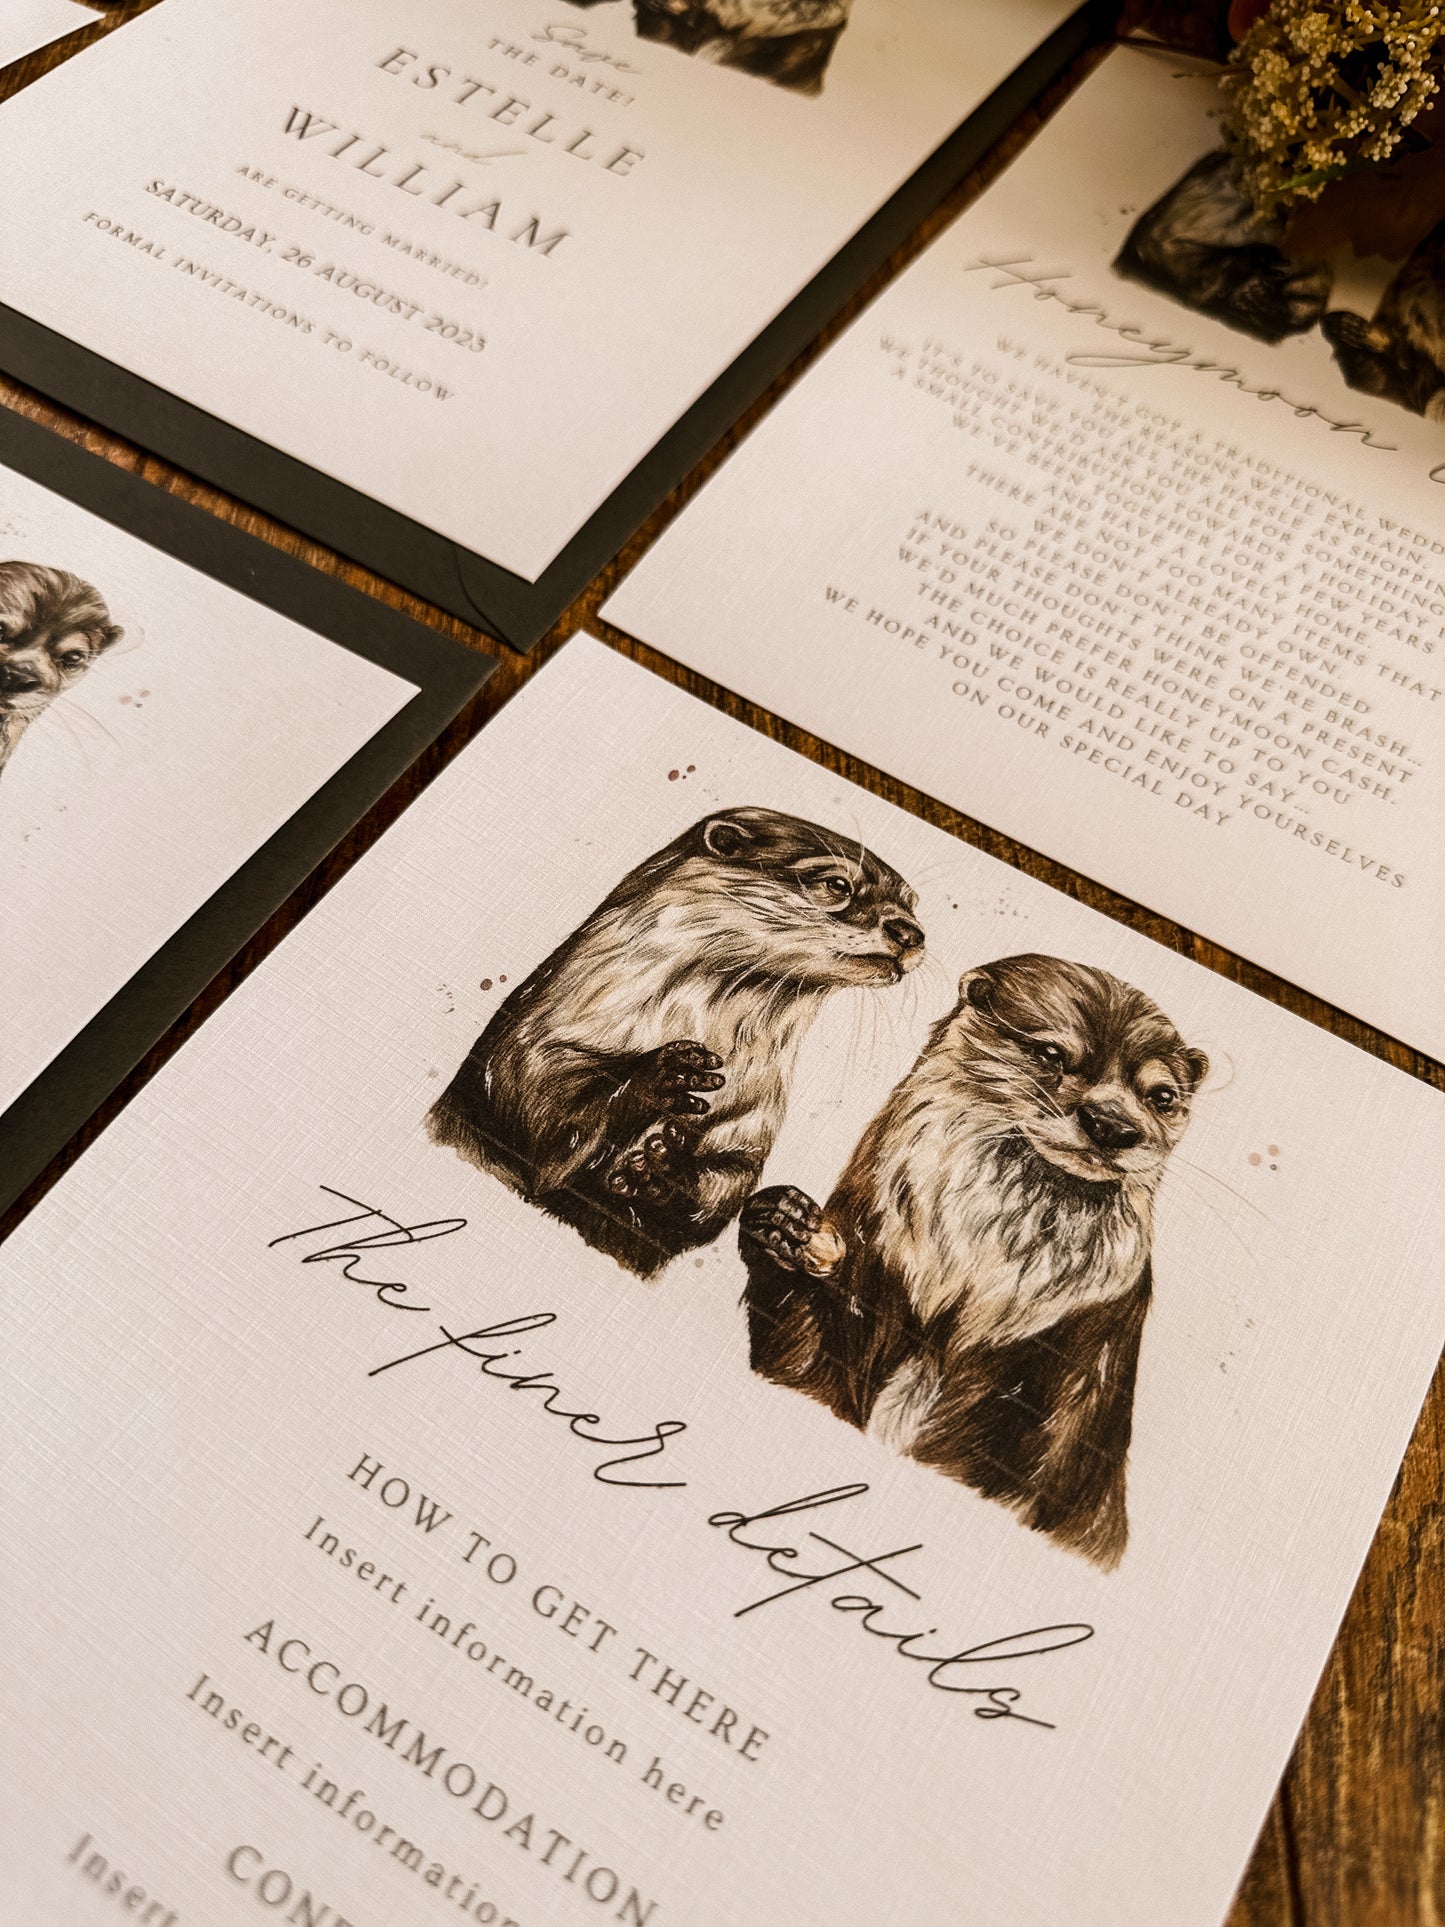 Save
THE DATE!
ESTELLE
and
WILLIAM
ARE GETTING MARRIED!
SATURDAY, 26 AUGUST 2023
FORMAL INVITATIONS TO FOLLOW
Honeymoon
WE HAVEN'T GOT A TRADITIONAL
THE REASONS WE'LL EXPLAIN,
IT'S TO SAVE YOU ALL THE HASSLE, AS
WE THOUGHT WE'D ASK YOU ALL FOR SOMETHING
A SMALL CONTRIBUTION TOWARDS A HOLIDAY
WE'VE BEEN TOGETHER FOR A FEW YEARS
AND HAVE A LOVELY HOME.
THERE ARE NOT TOO MANY ITEMS THAT
WE DON'T ALREADY OWN.
SO PLEASE DON'T BE OFFENDED
AND PLEASE DON'T THINK WE'RE BRASH...
IF YOUR THOUGHTS WERE ON A PRESENT
WE'D MUCH PREFER HONEYMOON CASH.
THE CHOICE IS REALLY UP TO YOU
AND WE WOULD LIKE TO SAY...
WE HOPE YOU COME AND ENJOY YOURSELVES
ON OUR SPECIAL DAY
The finer details
HOW TO GET THERE
Insert information here
ACCOMMODATION
Insert information
Insert